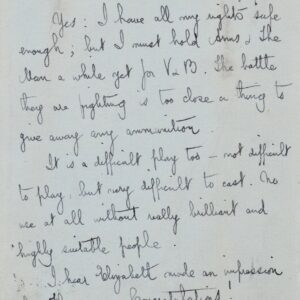 Yes: I have all my rights safe
enough; but I must hold Arms & The
Man a while yet for V & B. The battle
they are fighting is too close a thing to
give away any ammunition
It is a difficult play too – not difficult
to play, but very difficult to cast. No
use at all without really brilliant and
highly suitable people.
I hear Elizabeth made an impression
Congratulations!